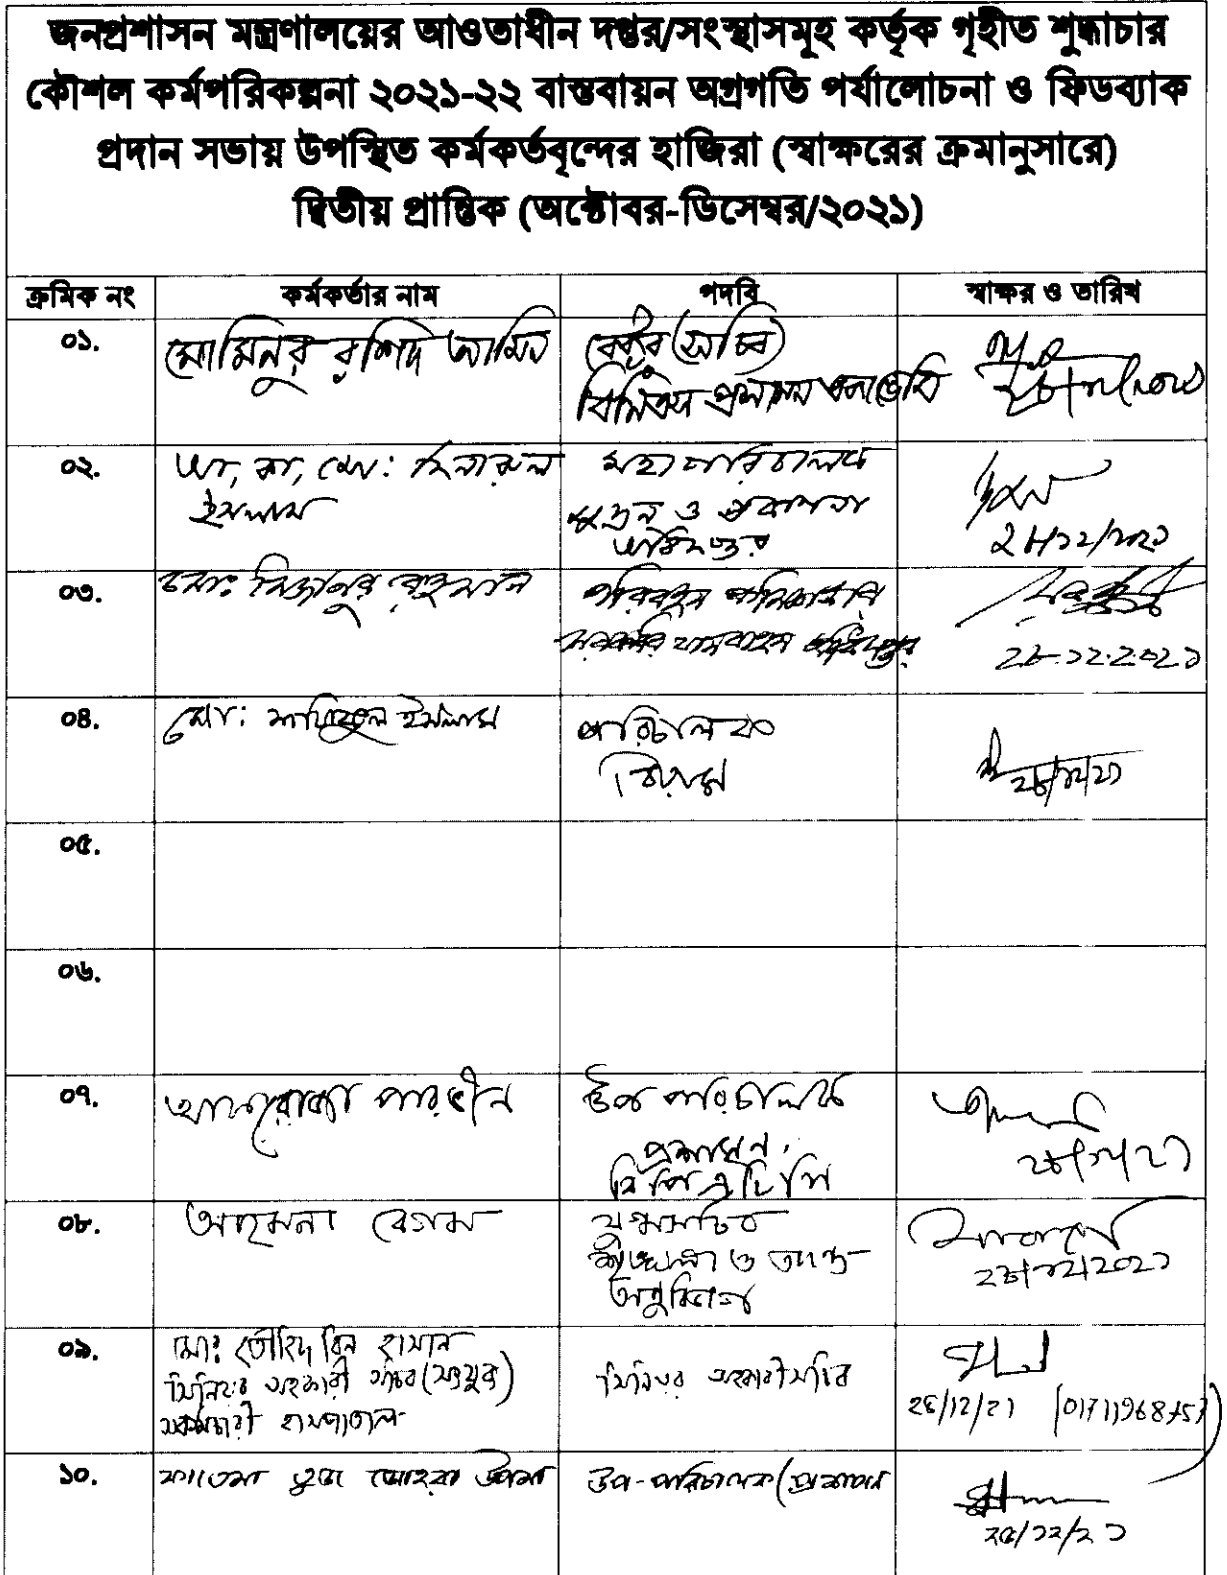 জনপ্রশাসন মন্ত্রণালয়ের আওতাধীন দপ্তর/সংস্থাসমূহ কর্তৃক গৃহীত শুদ্ধাচার
কৌশল কর্মপরিকল্পনা ২০২১-২২ বাস্তবায়ন অগ্রগতি পর্যালোচনা ও ফিডব্যাক
প্রদান সভায় উপস্থিত কর্মকর্তবৃন্দের হাজিরা (স্বাক্ষরের ক্রমানুসারে)
দ্বিতীয় প্রান্তিক (অক্টোবর-ডিসেম্বর/২০২১)
ক্রমিক নং কর্মকর্তার নাম পদবি স্বাক্ষর ও তারিখ
০১. মোমিনুর রশিদ আমিন রেক্টর (সচিব)
বিসিএস প্রশাসন একাডেমি
০২. মহাপরিচালক
ইসলাম মুদ্রণ ও প্রকাশনা
অধিদপ্তর
০৩. মোঃ মিজানুর রহমান পরিবহন
সরকারি যানবাহন অধিদপ্তর
২৮.১২.২০২১
০৪. মো: ইসলাম পরিচালক
বিয়াম
০৫.
০৬.
০৭. আফরোজা পারভীন উপপরিচালক
প্রশাসন,
বিপিএটিসি
০৮. বেগম যুগ্মসচিব
শৃঙ্খলা ও তদন্ত
অনুবিভাগ
২৮/১২/২০২১
০৯. মোঃ তৌহিদ বিন হাসান
সিনিয়র সহকারী সচিব (সংযুক্ত) সিনিয়র সহকারী সচিব
হাসপাতাল
১০. ফাতেমা তুজ জোহরা উপমা উপ-পরিচালক (প্রশাসন